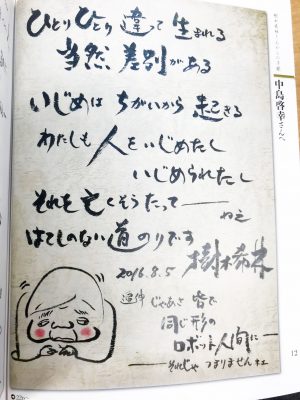 中島啓幸さんへ
ひとりひとり違って生まれる
当然、差別がある
いじめは ちがいから 起きる
わたしも 人をいじめたし
いじめられたし
それを亡くそうたって——ねえ
はてしのない道のりです
2016.8.5 樹木希林
追伸 じゃあさ 皆で
同じ形の
ロボット人間に——
——それじゃ つまりません
12